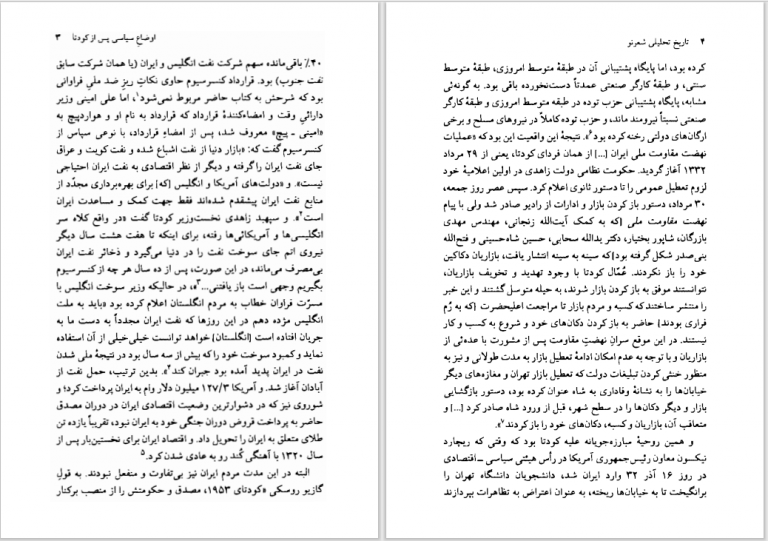 اوضاع سیاسی پس از کودتا ۳
۴۰٪ باقی‌مانده سهم شرکت نفت انگلیس و ایران (یا همان شرکت سابق
نفت جنوب) بود. قرارداد کنسرسیوم حاوی نکاتِ ریزِ ضد ملیِ فراوانی
بود که شرحش به کتاب حاضر مربوط نمی‌شود۱، اما علی امینی وزیر
دارائیِ وقت و امضاءکنندۀ قرارداد که قرارداد به نام او و هواردپیچ به
«امینی ـ پیچ» معروف شد، پس از امضاءِ قرارداد، با نوعی سپاس از
کنسرسیوم گفت که: «بازار دنیا از نفت اشباع شده و نفت کویت و عراق
جای نفت ایران را گرفته و دیگر از نظر اقتصادی به نفت ایران احتیاجی
نیست». و «دولت‌های آمریکا و انگلیس [که] برای بهره‌برداری مجدّد از
منابع نفت ایران پیشقدم شده‌اند فقط جهت کمک و مساعدت ایران
است۲». و سپهبد زاهدی نخست‌وزیر کودتا گفت «در واقع کلاه سر
انگلیسی‌ها و آمریکائی‌ها رفته، برای اینکه تا هفت هشت سال دیگر
نیروی اتم جای سوخت نفت را در دنیا می‌گیرد و ذخائر نفت ایران
بی‌مصرف می‌ماند، در این صورت، پس از ده سال هر چه از کنسرسیوم
بگیریم وجهی است باز یافتنی...۳»، در حالیکه وزیر سوخت انگلیس با
مسرّت فراوان خطاب به مردم انگلستان اعلام کرده بود «باید به ملت
انگلیس مژده دهم در این روزها که نفت ایران مجدداً به دست ما به
جریان افتاده است [انگلستان] خواهد توانست خیلی خیلی از آن استفاده
نماید و کمبود سوخت خود را که بیش از سه سال بود در نتیجۀ ملی شدن
نفت در ایران پدید آمده بود جبران کند۴». بدین ترتیب، حمل نفت از
آبادان آغاز شد. و آمریکا ۱۲۷/۳ میلیون دلار وام به ایران پرداخت کرد؛ و
شوروی نیز که در دشوارترین وضعیت اقتصادی ایران در دوران مصدق
حاضر به پرداخت قروض دوران جنگی خود به ایران نبود، تقریباً یازده تن
طلای متعلق به ایران را تحویل داد. و اقتصاد ایران برای نخستین‌بار پس از
سال ۱۳۲۰ با آهنگی کُند رو به عادی شدن کرد.۵
البته در این مدت مردم ایران نیز بی‌تفاوت و منفعل نبودند. به قولِ
گازیو روسکی «کودتای ۱۹۵۳، مصدق و حکومتش را از منصب برکنار
۴ تاریخ تحلیلی شعرنو
کرده بود، اما پایگاه پشتیبانی آن در طبقۀ متوسط امروزی، طبقۀ متوسط
سنتی، و طبقۀ کارگر صنعتی عمدتاً دست‌نخورده باقی بود. به گونه‌ئی
مشابه، پایگاه پشتیبانی حزب توده در طبقۀ متوسط امروزی و طبقۀ کارگر
صنعتی نسبتاً نیرومند ماند، و حزب توده کاملاً در نیروهای مسلح و برخی
ارگان‌های دولتی رخنه کرده بود۶». نتیجۀ این واقعیت این بود که «عملیات
نهضت مقاومت ملی ایران [...] از همان فردای کودتا، یعنی از ۲۹ مرداد
۱۳۳۲ آغاز گردید. حکومت نظامی دولت زاهدی در اولین اعلامیۀ خود
لزوم تعطیل عمومی را تا دستور ثانوی اعلام کرد. سپس عصر روز جمعه،
۳۰ مرداد، دستور باز کردن بازار و ادارات از رادیو صادر شد ولی با پیام
نهضت مقاومت ملی [که به کمک آیت‌الله زنجانی، مهندس مهدی
بازرگان، شاپور بختیار، دکتر یدالله سحابی، حسین شاه‌حسینی و فتح‌الله
بنی‌صدر شکل گرفته بود] که سینه به سینه انتشار یافت، بازاریان دکاکین
خود را باز نکردند. عُمّال کودتا با وجود تهدید و تخویف بازاریان،
نتوانستند موفق به باز کردن بازار شوند، به حیله متوسل گشتند و این خبر
را منتشر ساختند که کسبه و مردم بازار تا مراجعت اعلیحضرت [که به رُم
فراری بودند] حاضر به باز کردن دکان‌های خود و شروع به کسب و کار
نیستند. در این موقع سرانِ نهضتِ مقاومت پس از مشورت با عده‌ئی از
بازاریان و با توجه به عدم امکان ادامۀ تعطیل بازار به مدت طولانی و نیز به
منظور خنثی کردن تبلیغات دولت که تعطیل بازار تهران و مغازه‌های دیگر
خیابان‌ها را به نشانۀ وفاداری به شاه عنوان کرده بود، دستور بازگشایی
بازار و دیگر دکان‌ها را در سطح شهر، قبل از ورود شاه صادر کرد [...] و
متعاقب آن، بازاریان و کسبه، دکان‌های خود را باز کردند.۷»
و همین روحیۀ مبارزه‌جویانه علیه کودتا بود که وقتی که ریچارد
نیکسون معاون رئیس‌جمهوری آمریکا در رأس هیئتی سیاسی ـ اقتصادی
در روز ۱۶ آذر ۳۲ وارد ایران شد، دانشجویان دانشگاه تهران را
برانگیخت تا به خیابان‌ها ریخته، به عنوان اعتراض به تظاهرات بپردازند